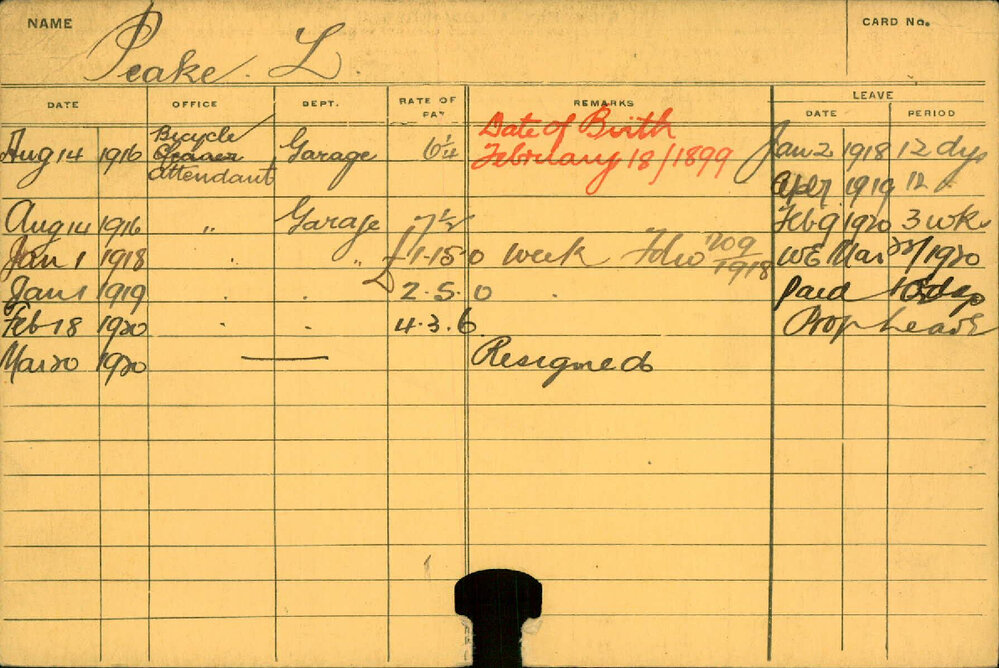 NAME
CARD No.
Peake. L
DATE OFFICE DEPT. RATE OF PAY REMARKS LEAVE
DATE PERIOD
Bicycle
Aug 14 1916 Cleaner Garage 6¼
attendant
Date of Birth
February 18/1899
Jan 2 1918 12 dys
Apl 7 1919 12
Aug 14 1916 " Garage 7½ Feb 9 1920 3 wks
Jan 1 1918 . " £1-15-0 week Folio 209/1918 WE Mar 1920
Jan 1 1919 . . 2.5.0 . paid
Feb 18 1920 . . 4.3.6 Prop Leave
Mar 20 1920 — Resigned